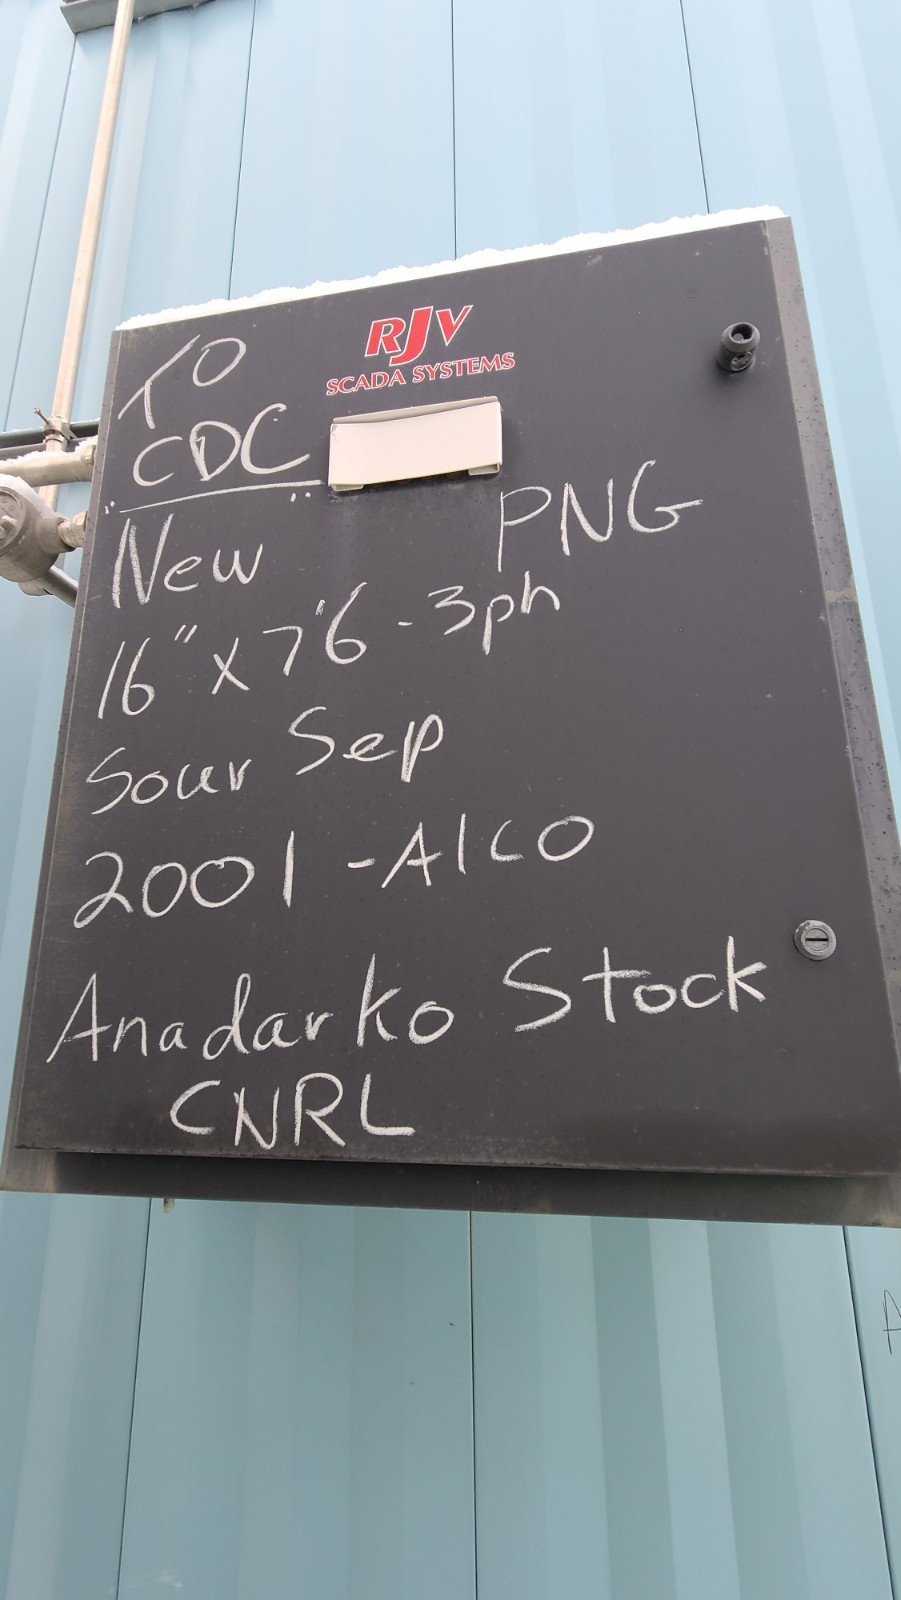 RJV
SCADA SYSTEMS
TO
CDC
"New"
PNG
16" x 7'6 - 3ph
Sour Sep
2001 - Alco
Anadarko Stock
CNRL